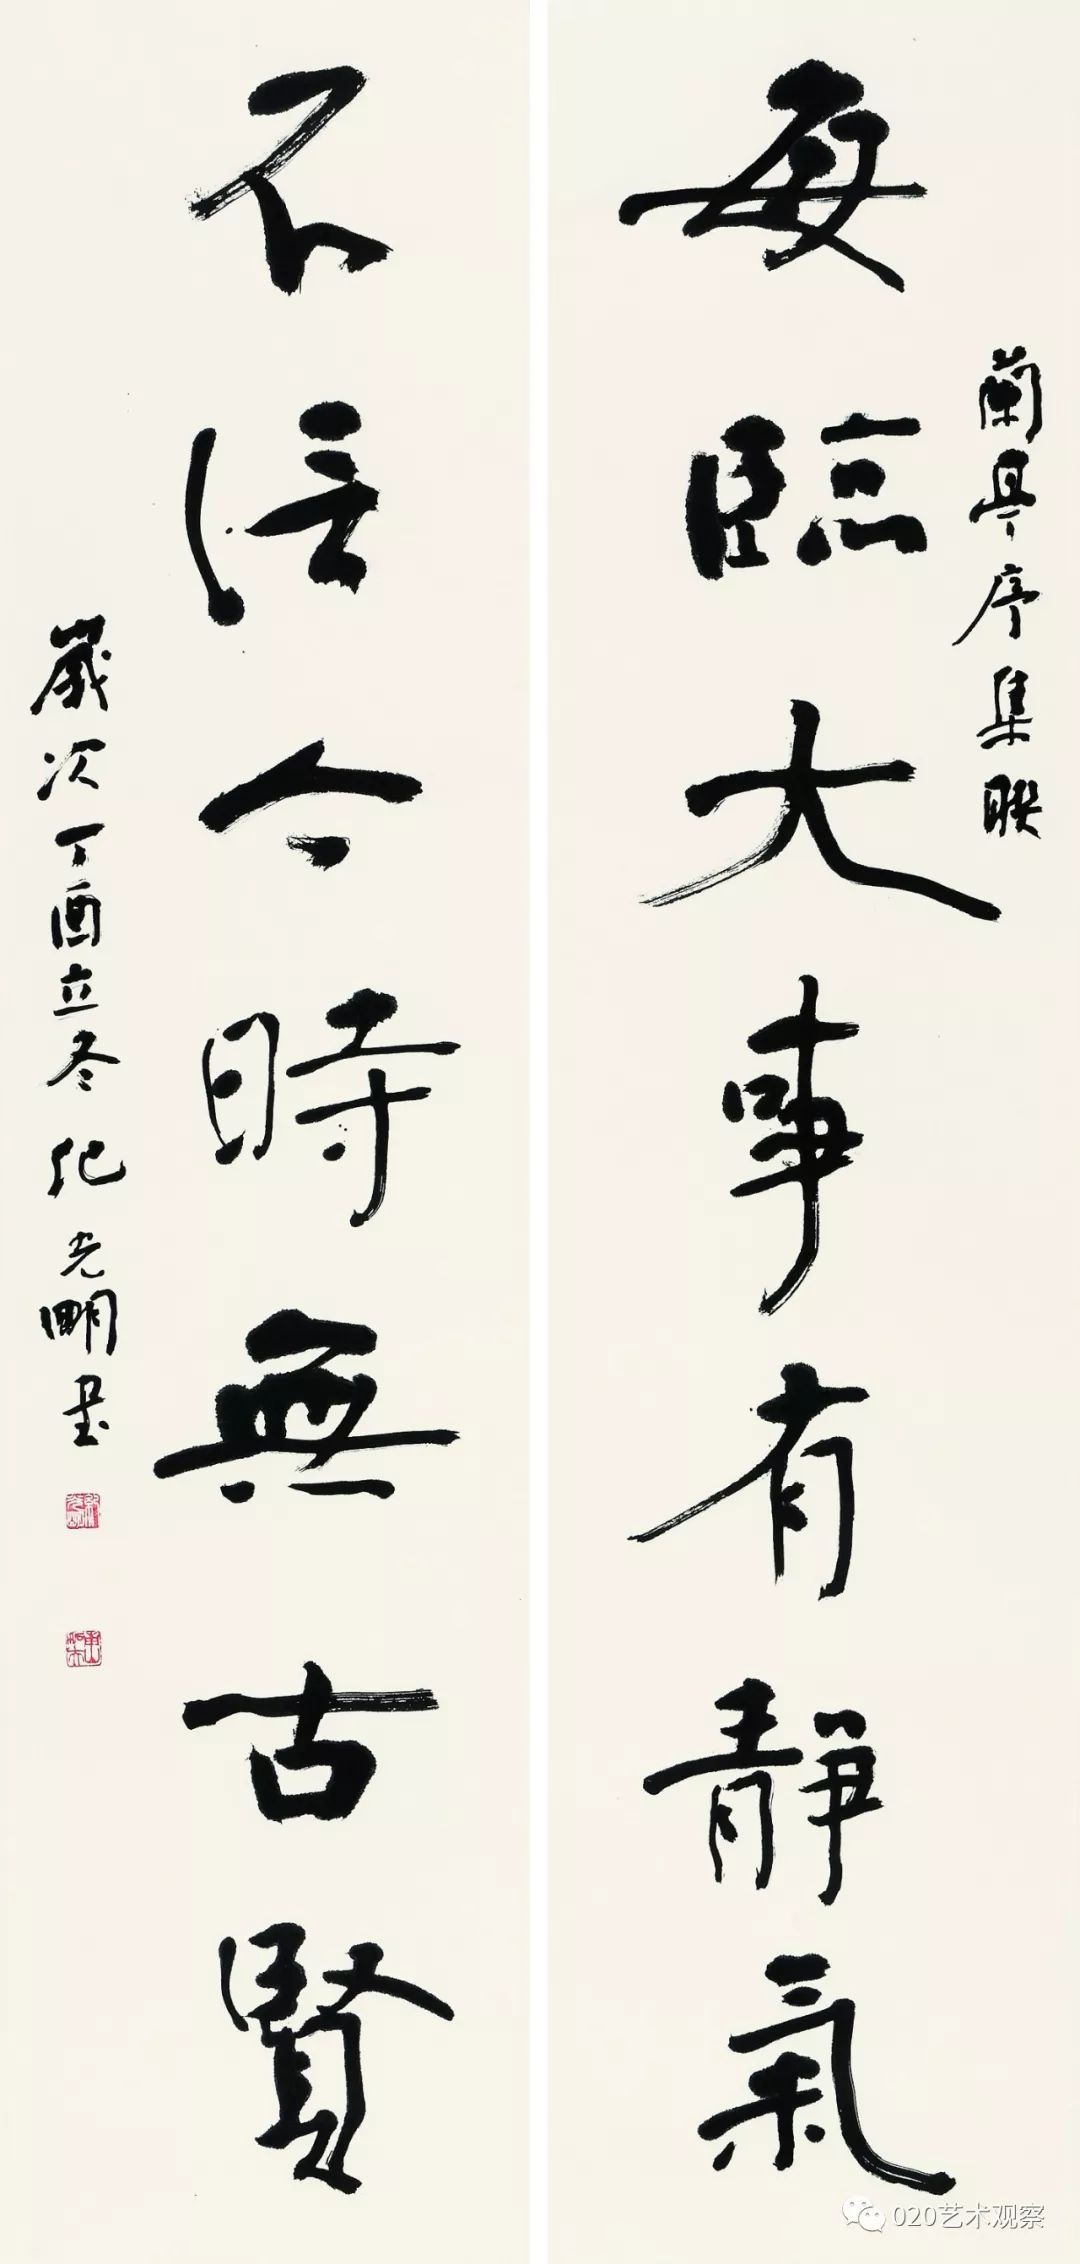 每臨大事有靜氣
蘭亭序集联
不信今時無古賢
歲次丁酉立冬纪光明书
020艺术观察